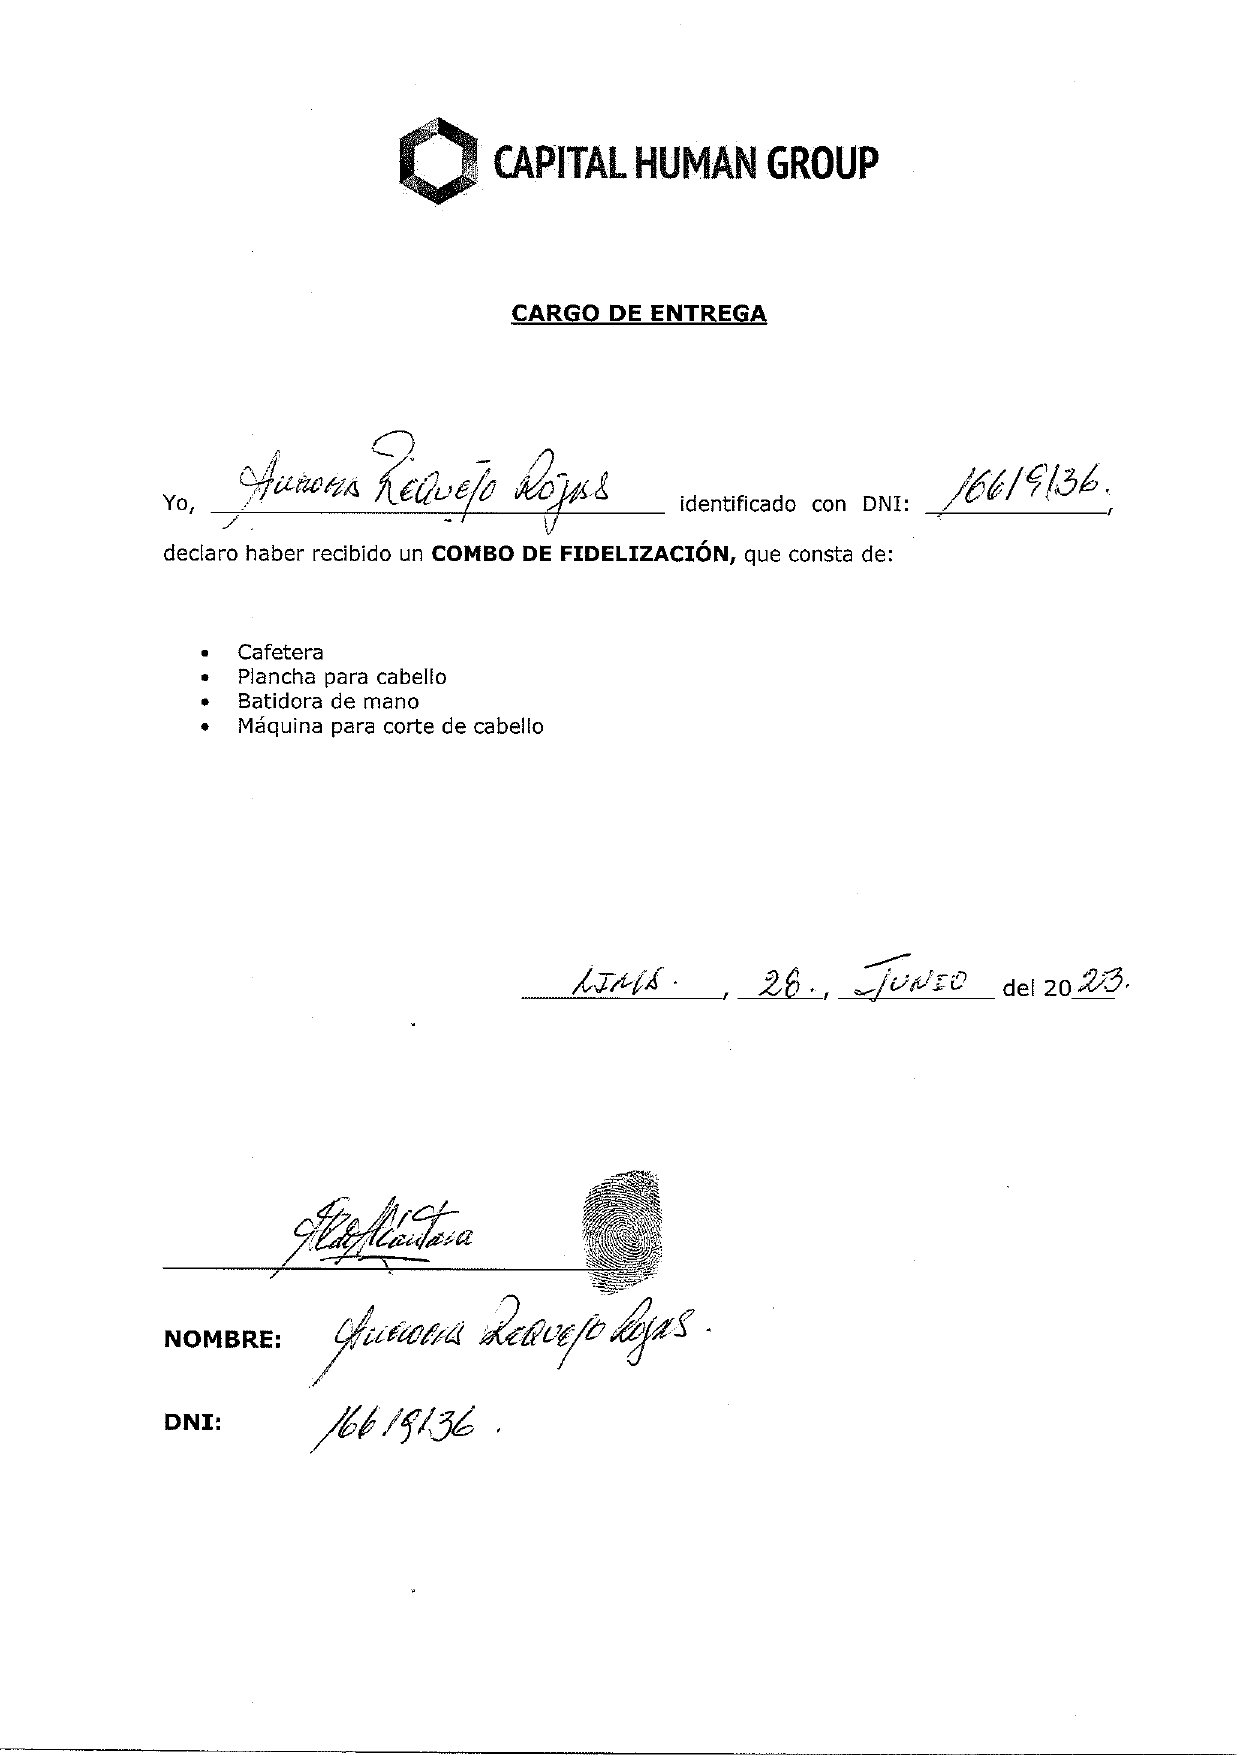 CAPITAL HUMAN GROUP
CARGO DE ENTREGA
Yo, Aurora Requejo Rojas identificado con DNI: 16619136.,
declaro haber recibido un COMBO DE FIDELIZACIÓN, que consta de:
• Cafetera
• Plancha para cabello
• Batidora de mano
• Máquina para corte de cabello
LIMA. , 28., JUNIO del 2023.
NOMBRE: Aurora Requejo Rojas.
DNI: 16619136.